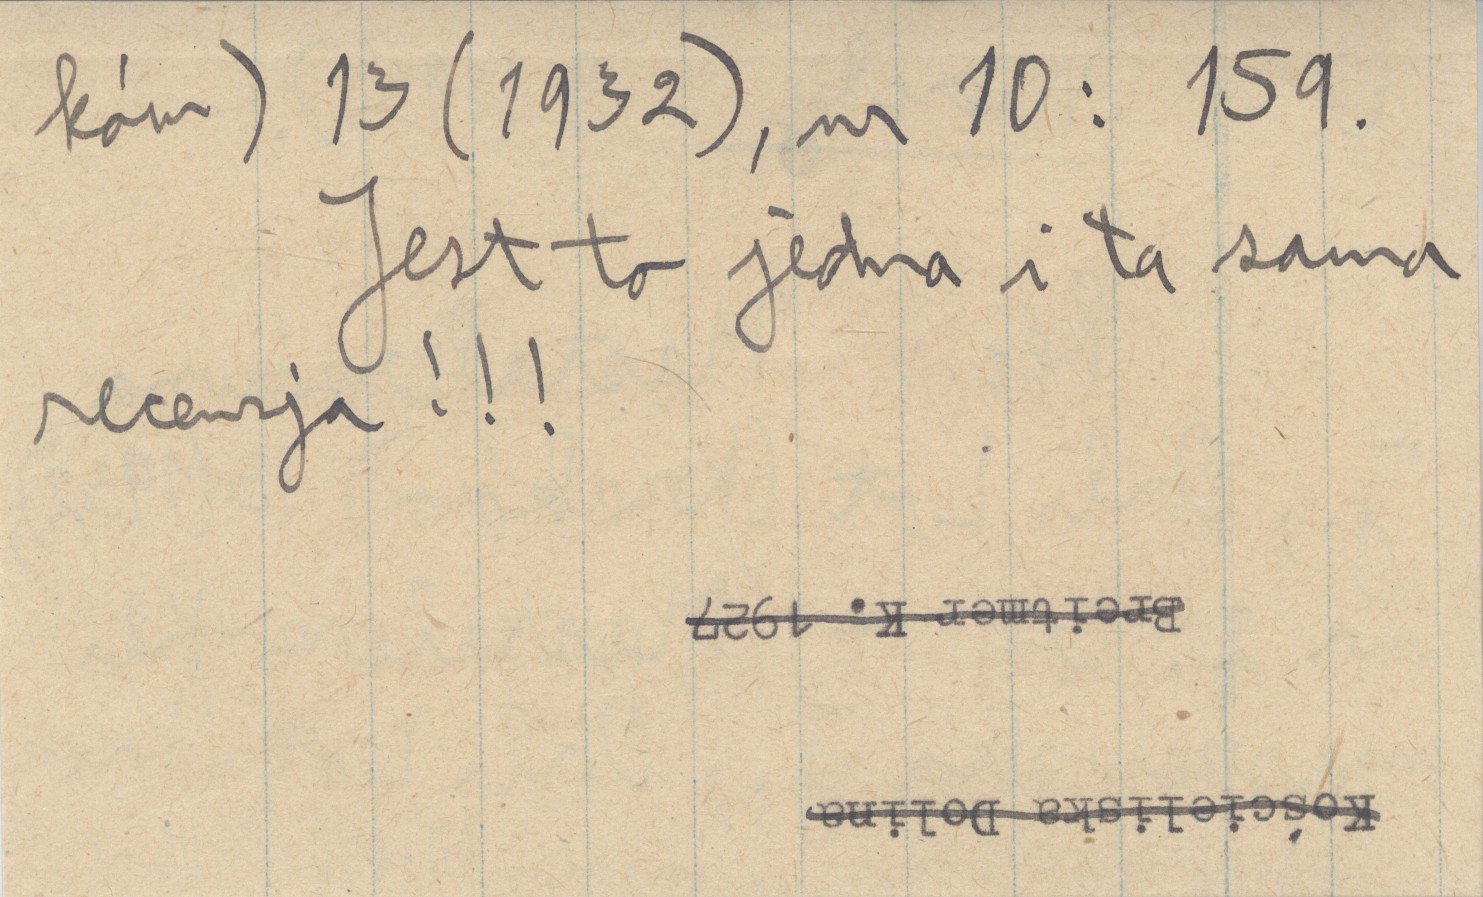 ków) 13 (1932), nr 10: 159.
Jest to jedna i ta sama
recenzja!!!
Breitmer K. 1927
Kościeliska Dolina